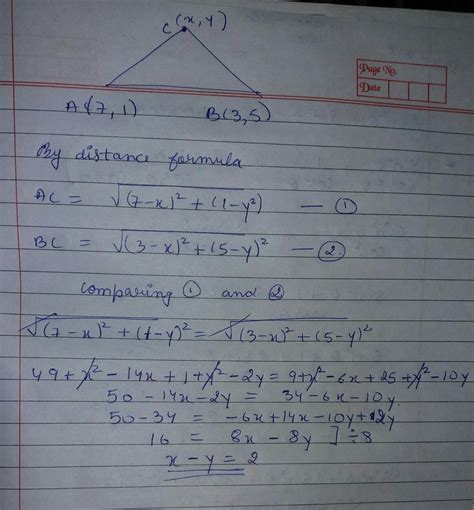 C(x,y)
Page No.
Date
A(7,1)
B(3,5)
By distance formula
AC = √(7-x)² + (1-y²) — ①
BC = √(3-x)² + (5-y)² — ②
comparing ① and ②
√(7-x)² + (1-y)² = √(3-x)² + (5-y)²
49+x²-14x+1+y²-2y = 9+x²-6x+25+y²-10y
50-14x-2y = 34-6x-10y
50-34 = -6x+14x-10y+2y
16 = 8x-8y ]÷8
x-y = 2